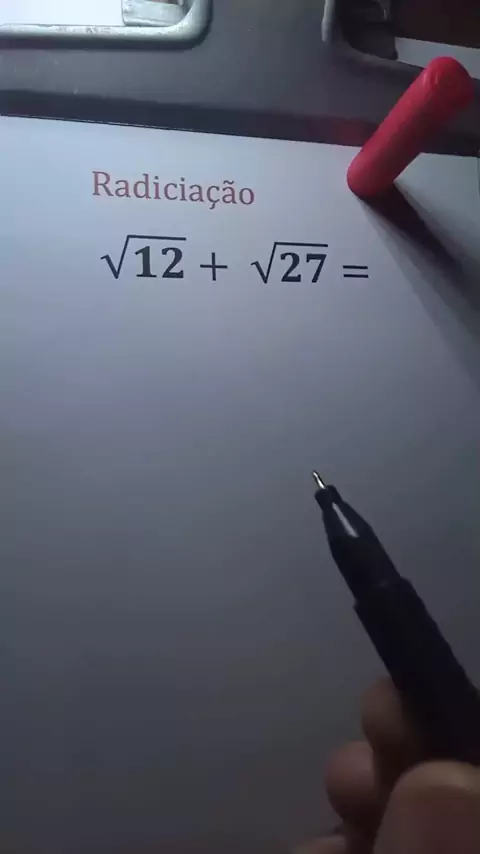 Radiciação
√12 + √27 =